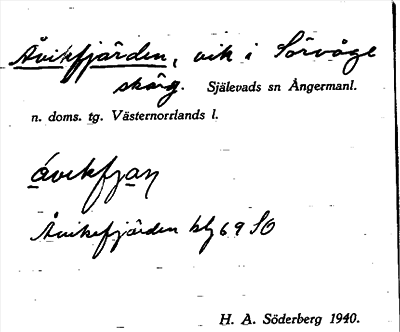 Åvikfjärden, vik i Sörvåge
skärg. Själevads sn Ångermanl.
n. doms. tg. Västernorrlands l.
åvikfjan
Åvikefjärden blg 69 SO
H. A. Söderberg 1940.